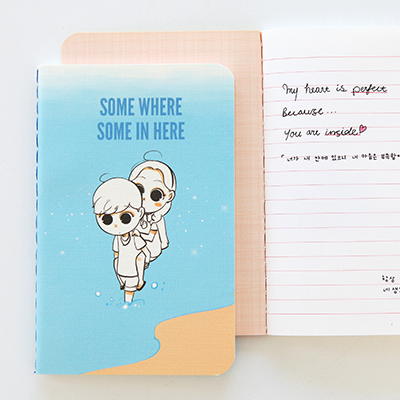 SOME WHERE
SOME IN HERE
My heart is perfect
Because...
You are inside
"너가 내 안에 있으니 내 마음은 부족함
항상
네 생